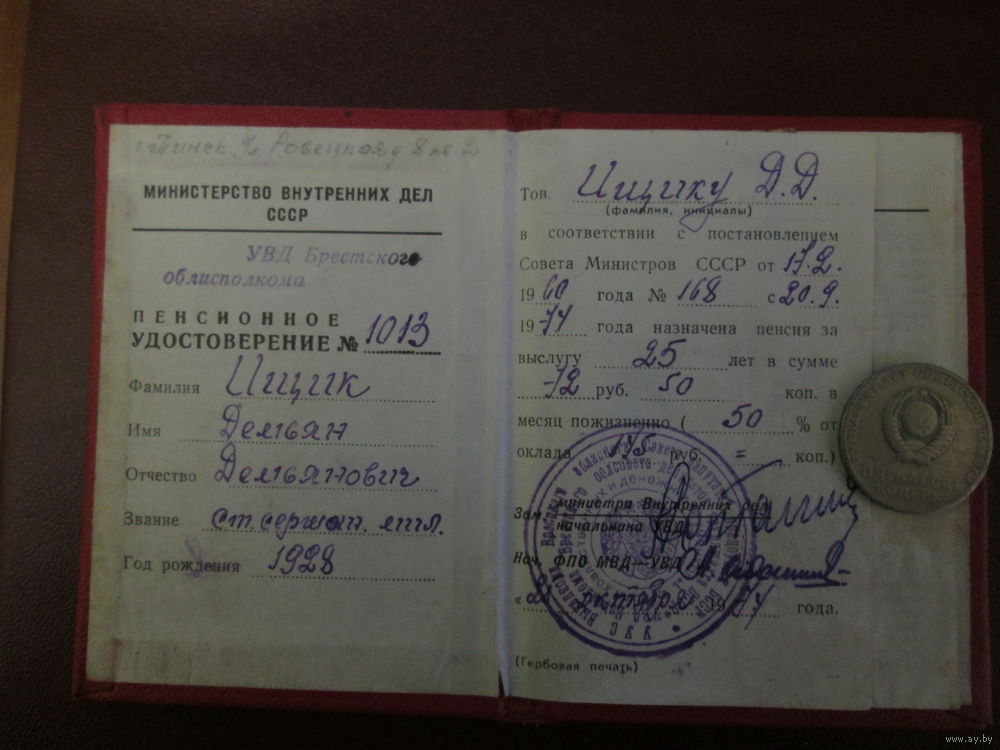 г. Пинск
МИНИСТЕРСТВО ВНУТРЕННИХ ДЕЛ
СССР
УВД Брестского
облисполкома
ПЕНСИОННОЕ
УДОСТОВЕРЕНИЕ № 1013
Фамилия Ищик
Имя Демьян
Отчество Демьянович
Звание ст. сержан. мил.
Год рождения 1928
Тов. Ищику Д.Д.
(фамилия, инициалы)
в соответствии с постановлением
Совета Министров СССР от 17.2.
1960 года № 168 с 20.9.
1974 года назначена пенсия за
выслугу 25 лет в сумме
72 руб. 50 коп. в
месяц пожизненно ( 50 % от
оклада 145 руб. = коп.)
Зам. министра Внутренних дел
начальника УВД
Нач. ФПО МВД—УВД
октября 1974 года.
(Гербовая печать)
www.ay.by